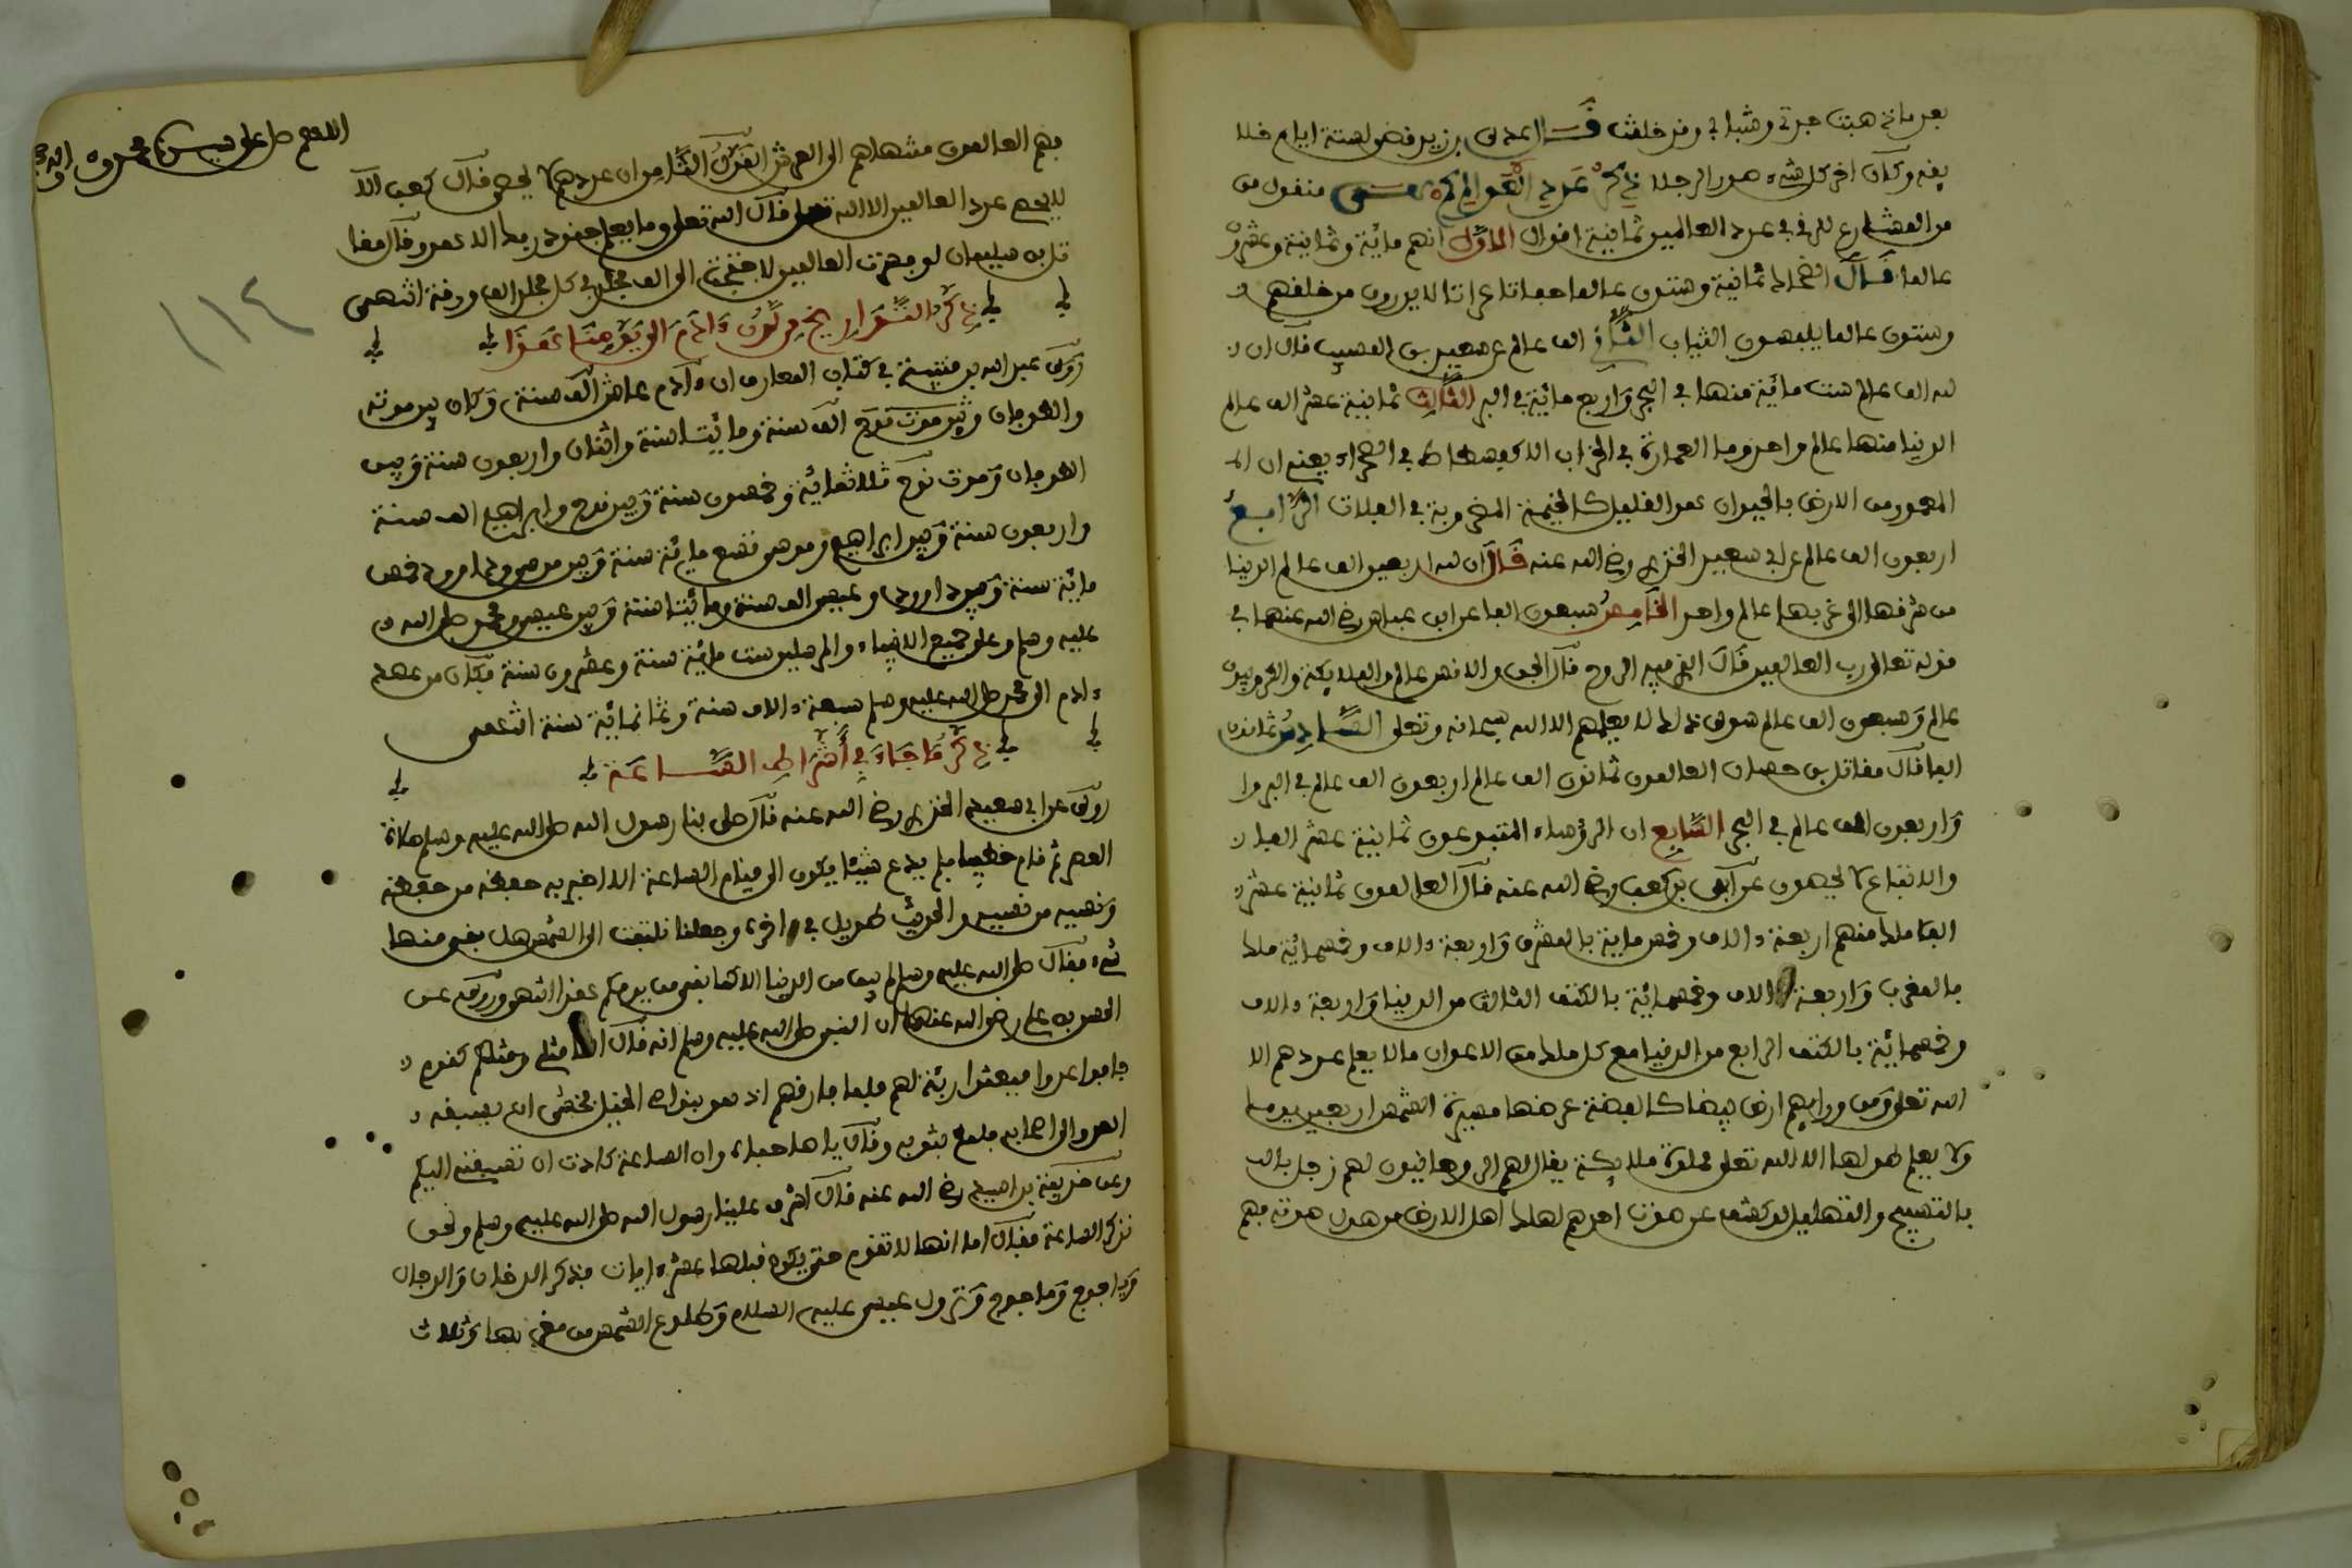 بعد ما ذهبت جدتي وشبابي وقد خلقت قال عدي بن زيد قضى لستة ايام خلا
يقه وكان اخر كل شيء صور الرجلا ذكر عدد العوالم كم هي منقول من
من المشارع للرفي في عدد العالمين ثمانية اقوال الاول انهم مائة وثمانية وعشرون
عالما قال الضحاك ثمانية وستون عالما حفاتا عراتا لا يدرون من خلقهم و
وستون عالما يلبسون الثياب الثاني الف عالم عن سعيد بن المسيب قال ان
لله الف عالم ست مائة منها في البحر واربع مائة في البر الثالث ثمانية عشر الف عالم
الدنيا منها عالم واحد وما العمارة في الخراب الا كفسطاط في الصحراء يعني ان
المعمور من الارض بالحيوان هو القليل كالخيمة المضروبة في الفلات الرابع
اربعون الف عالم عن ابي سعيد الخدري رضي الله عنه قال ان لله اربعين الف عالم الدنيا
من شرقها الى غربها عالم واحد الخامس سبعون الفا عن ابن عباس رضي الله عنهما في
قوله تعالى رب العالمين قال الذي فيه الروح قال الجن والانس عالم والملايكة والكروبيون
عالم وسبعون الف عالم سوى ذلك لا يعلمهم الا الله سبحانه وتعلى السادس ثمانون
الفا قال مقاتل بن حسان العالمون ثمانون الف عالم اربعون الف عالم في البر وا
واربعون الف عالم في البحر السابع ان الرؤساء المتبوعون ثمانية عشر الفا
والاتباع لا يحصون عن ابي بن كعب رضي الله عنه قال العالمون ثمانية عشر
الفا ملكا منهم اربعة ءالاف وخمس ماية بالمشرق واربعة ءالاف وخمسمائة ملك
بالمغرب واربعة ءالاف وخمسمائة بالكنف الثالث من الدنيا واربعة ءالاف
وخمسمائة بالكنف الرابع من الدنيا مع كل ملك من الاعوان مالا يعلم عددهم الا
الله تعلى ومن ورايهم ارض بيضا كالفضة عرضها مسيرة الشمس اربعين يوما
ولا يعلم طولها الا الله تعلى مملوة ملايكة يقال لهم الروحانيون لهم زجل بالت
بالتسبيح والتهليل لو كشف عن صوت احدهم لهلك اهل الارض من هول صوته فهم
اللهم صل على سيدنا محمد وءاله
١١٤
فهم العالمون منتهاهم الى العرش القول الثامن ان عددهم لا يحصى قال كعب الا
لا يحصى عدد العالمين الا الله تعلى قال الله تعلى وما يعلم جنود ربك الا هو وقال مقا
تل بن سليمان لو فسرت العالمين لاحتجت الى الف مجلد في كل مجلد الف ورقة انتهى
ذكر التواريخ من لدن ءادم الى يومنا هذا
روى عبد الله بن قتيبة في كتاب المعارف ان ءادم عاش الف سنة وكان بين موته
والطوفان وبين موت نوح الف سنة ومائيتا سنة واثنان واربعون سنة وبين
الطوفان وموت نوح ثلاثمائة وخمسون سنة وبين نوح وابراهيم الف سنة
واربعون سنة وبين ابراهيم وموسى تسع مائة سنة وبين موسى وداوود خمس
مائة سنة وبين داوود وعيسى الف سنة ومائيتا سنة وبين عيسى ومحمد صلى الله
عليه وسلم وعلى جميع الانبياء والمرسلين ست مائة سنة وعشرون سنة فكان من عهد
ءادم الى محمد صلى الله عليه وسلم سبعة ءالاف سنة وثمانمائة سنة انتهى
ذكر ما جاء في اشراط الساعة
روي عن ابي سعيد الخدري رضي الله عنه قال صلى بنا رسول الله صلى الله عليه وسلم صلاة
العصر ثم قام خطيبا فلم يدع شيئا يكون الى قيام الساعة الا اخبر به حفظه من حفظه
ونسيه من نسيه والحديث طويل في اخره وجعلنا نلتفت الى الشمس هل بقي منها
شيء فقال صلى الله عليه وسلم لم يبق من الدنيا الا كما بقي من يومكم هذا انتهى وروي عن
الحسن بن علي رضي الله عنهما ان النبي صلى الله عليه وسلم انه قال انما مثلي ومثلكم كقوم
خافوا عدوا فبعثوا ربئة لهم فلما فارقهم اذ هو بنواصي الخيل فخشي ان يسبقه
العدو الى اصحابه فلمع بثوبه وقال يا صاحباه وان الساعة كادت ان تسبقني اليكم
وعن حذيفة بن اسيد رضي الله عنه قال اشرف علينا رسول الله صلى الله عليه وسلم ونحن
نذكر الساعة فقال اما انها لا تقوم حتى يكون قبلها عشر ءايات فذكر الدخان والدجال
وياجوج وماجوج ونزول عيسى عليه السلام وطلوع الشمس من مغربها وثلاث